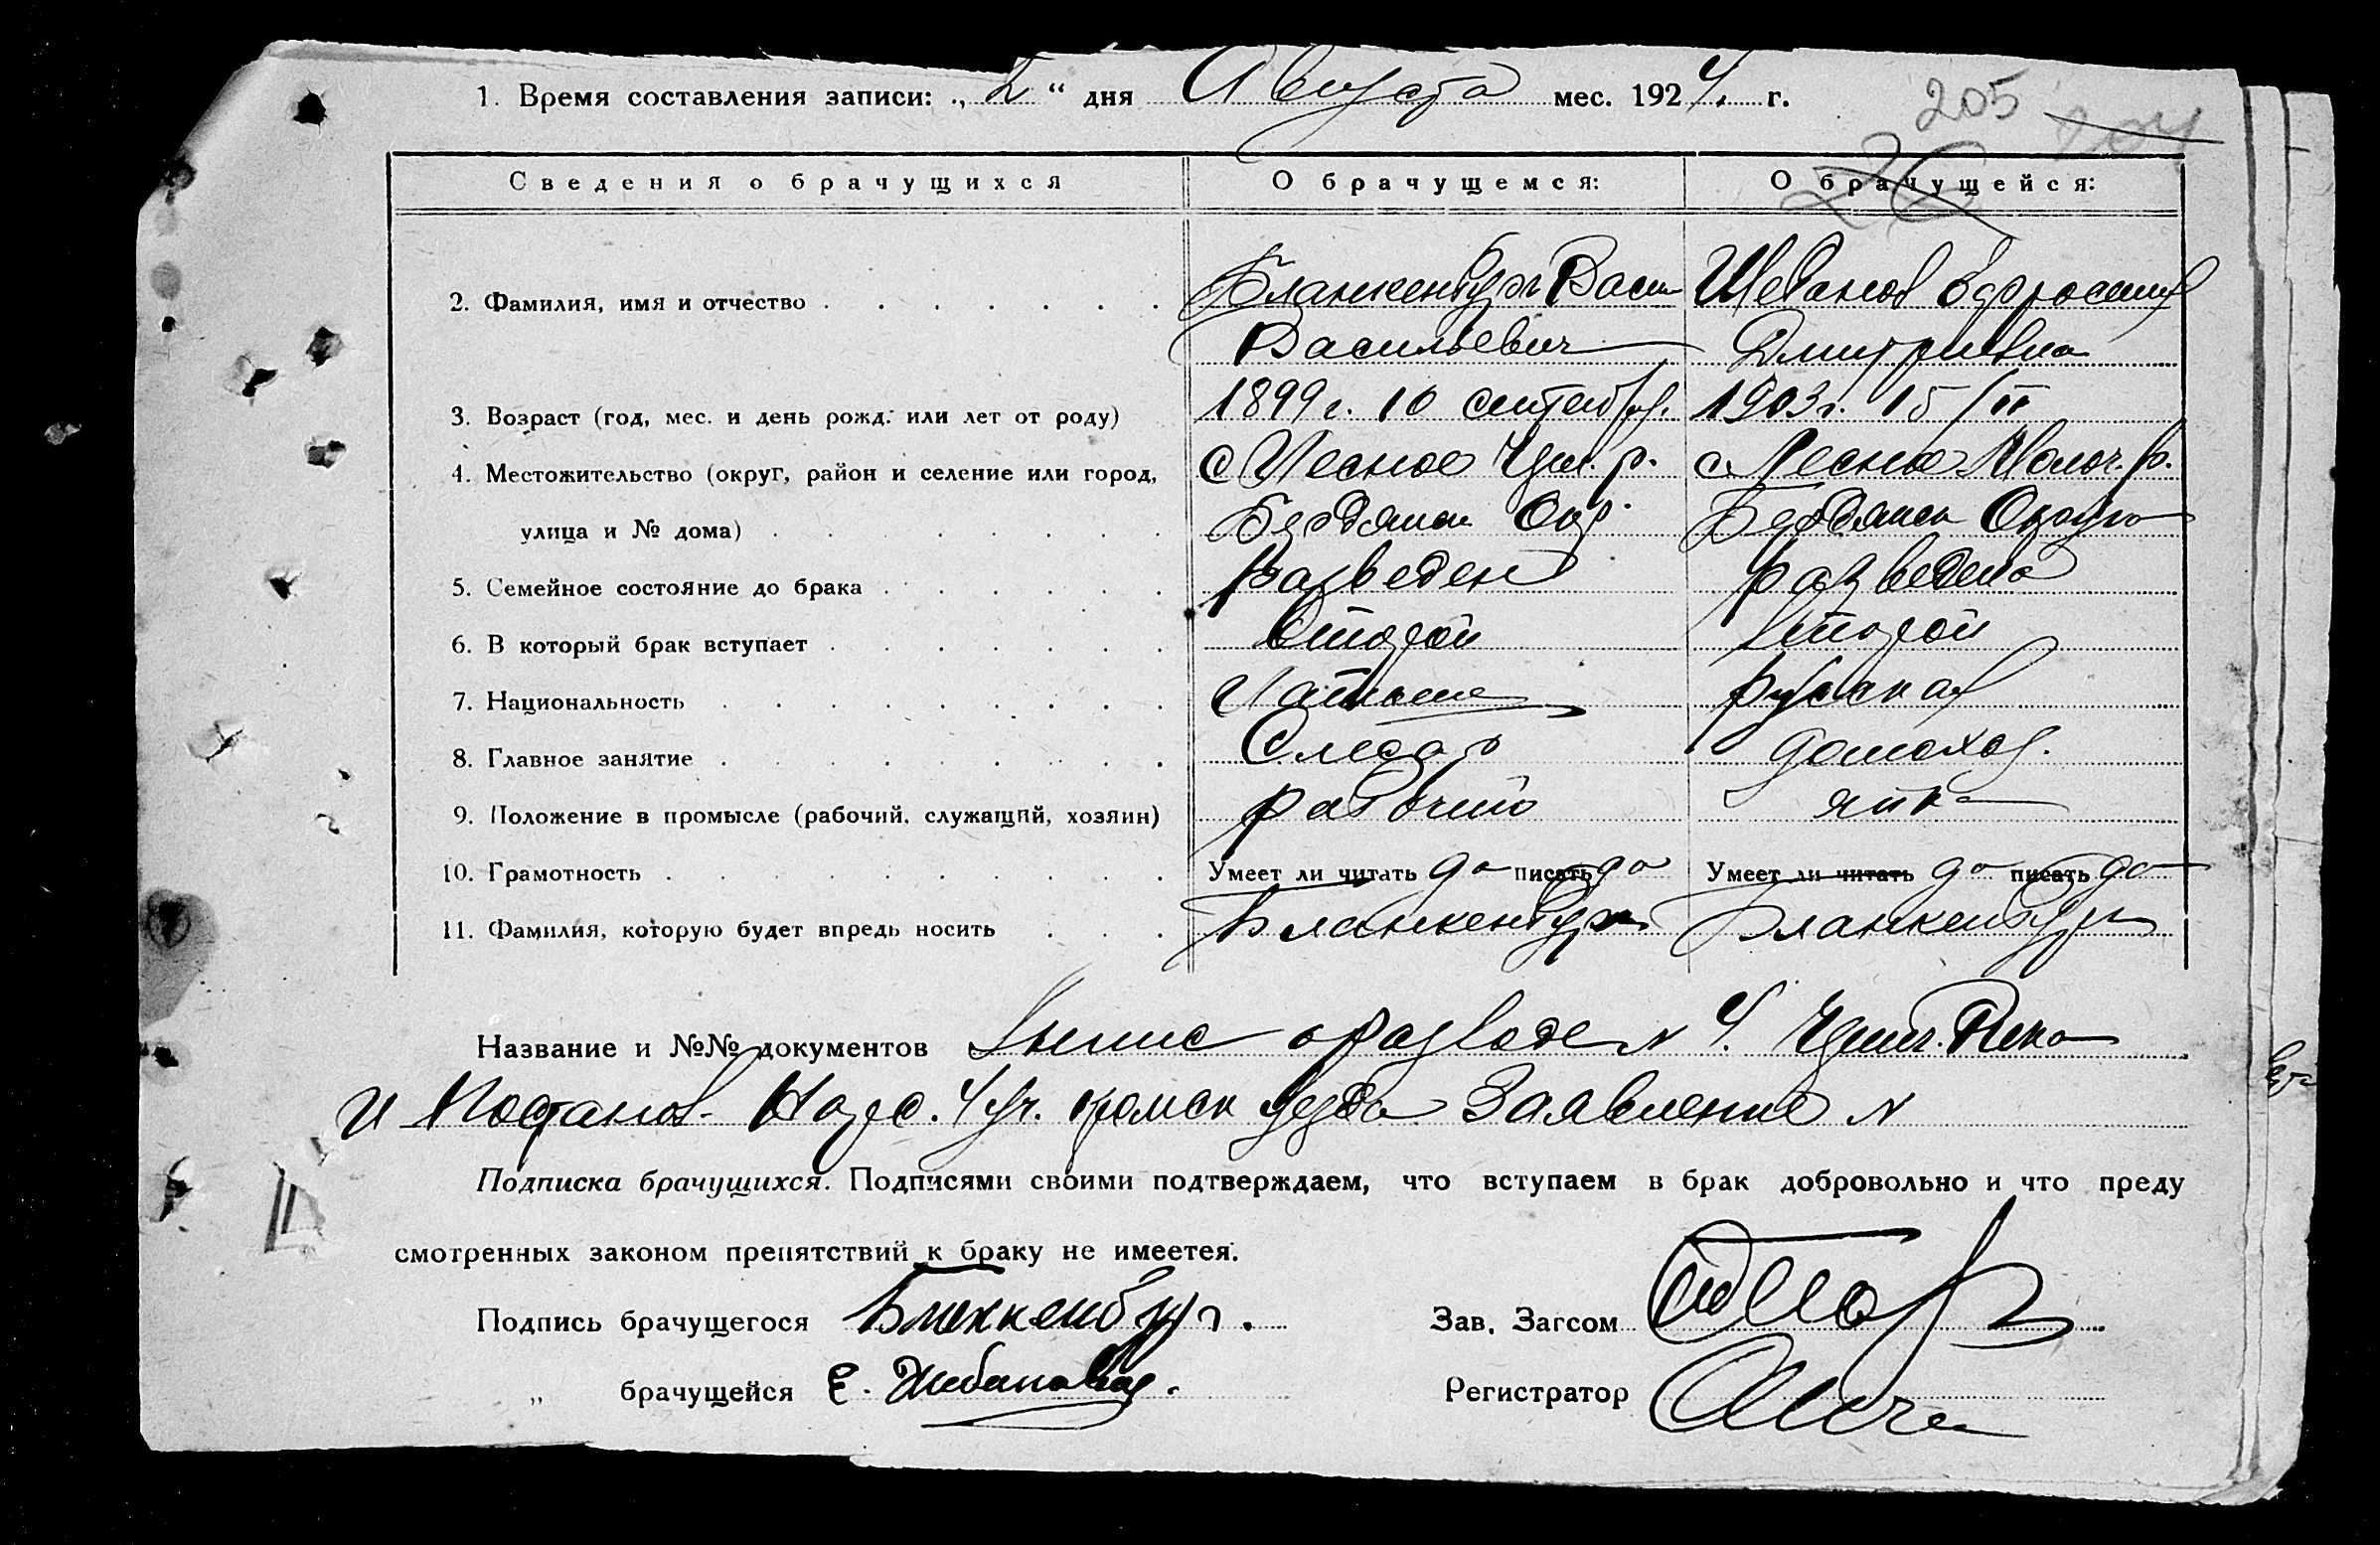 1. Время составления записи: „2“ дня Августа мес. 1924. г.
205
204
26
Сведения о брачущихся О брачущемся: О брачущейся:
2. Фамилия, имя и отчество Бланкенбург Васи Ефросиния
Васильевич Дмитриевна
3. Возраст (год, мес. и день рожд. или лет от роду) 1899 г. 10 сентября. 1903 г. 15/II
4. Местожительство (округ, район и селение или город, с Лесное р. с. Лесное р.
улица и № дома) Бердянск Окр. Бердянск Округа
5. Семейное состояние до брака Разведен разведена
6. В который брак вступает Второй Второй
7. Национальность Латыш русская
8. Главное занятие Слесар домохоз.
9. Положение в промысле (рабочий, служащий, хозяин) рабочий яйка
10. Грамотность Умеет ли читать да писать да Умеет ли читать да писать да
11. Фамилия, которую будет впредь носить Бланкенбург Бланкенбург
Название и №№ документов о разводе N 4. Рика
и 4 уч. суда Заявление N
Подписка брачущихся. Подписями своими подтверждаем, что вступаем в брак добровольно и что преду
смотренных законом препятствий к браку не имеетея.
Подпись брачущегося Бланкенбург. Зав. Загсом
„ брачущейся Е. Регистратор